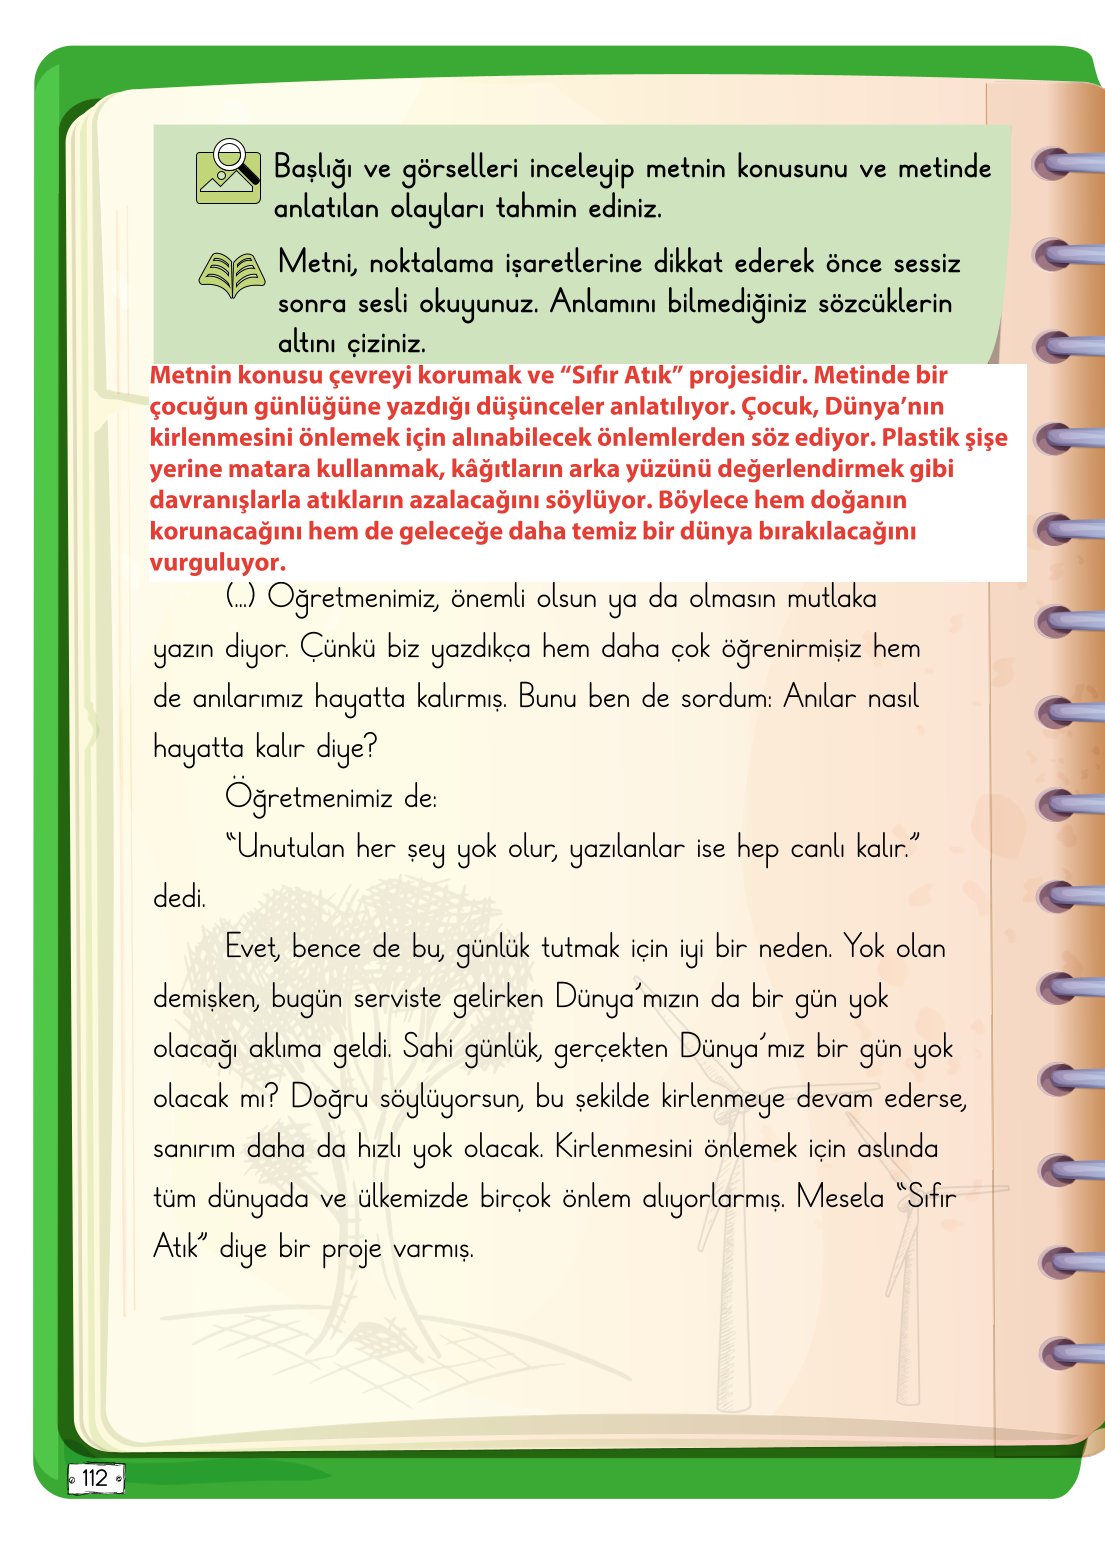 Başlığı ve görselleri inceleyip metnin konusunu ve metinde
anlatılan olayları tahmin ediniz.
Metni, noktalama işaretlerine dikkat ederek önce sessiz
sonra sesli okuyunuz. Anlamını bilmediğiniz sözcüklerin
altını çiziniz.
Metnin konusu çevreyi korumak ve “Sıfır Atık” projesidir. Metinde bir
çocuğun günlüğüne yazdığı düşünceler anlatılıyor. Çocuk, Dünya’nın
kirlenmesini önlemek için alınabilecek önlemlerden söz ediyor. Plastik şişe
yerine matara kullanmak, kâğıtların arka yüzünü değerlendirmek gibi
davranışlarla atıkların azalacağını söylüyor. Böylece hem doğanın
korunacağını hem de geleceğe daha temiz bir dünya bırakılacağını
vurguluyor.
(...) Öğretmenimiz, önemli olsun ya da olmasın mutlaka
yazın diyor. Çünkü biz yazdıkça hem daha çok öğrenirmişiz hem
de anılarımız hayatta kalırmış. Bunu ben de sordum: Anılar nasıl
hayatta kalır diye?
Öğretmenimiz de:
“Unutulan her şey yok olur, yazılanlar ise hep canlı kalır.”
dedi.
Evet, bence de bu, günlük tutmak için iyi bir neden. Yok olan
demişken, bugün serviste gelirken Dünya’mızın da bir gün yok
olacağı aklıma geldi. Sahi günlük, gerçekten Dünya’mız bir gün yok
olacak mı? Doğru söylüyorsun, bu şekilde kirlenmeye devam ederse,
sanırım daha da hızlı yok olacak. Kirlenmesini önlemek için aslında
tüm dünyada ve ülkemizde birçok önlem alıyorlarmış. Mesela “Sıfır
Atık” diye bir proje varmış.
112